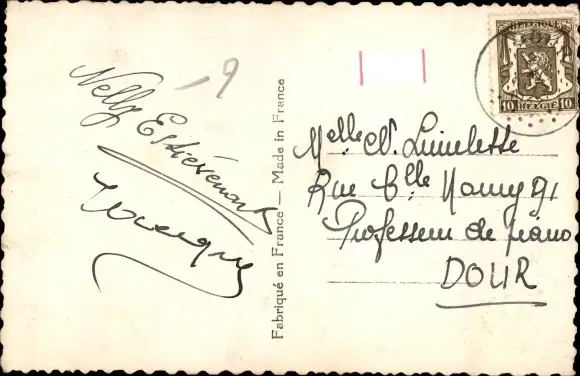 - 9
Nelly Estiévenart
Fabriqué en France — Made in France
BELGIQUE
10 BELGIË 10
Melle
Rue Clle Namy 91
Professeur de piano
DOUR